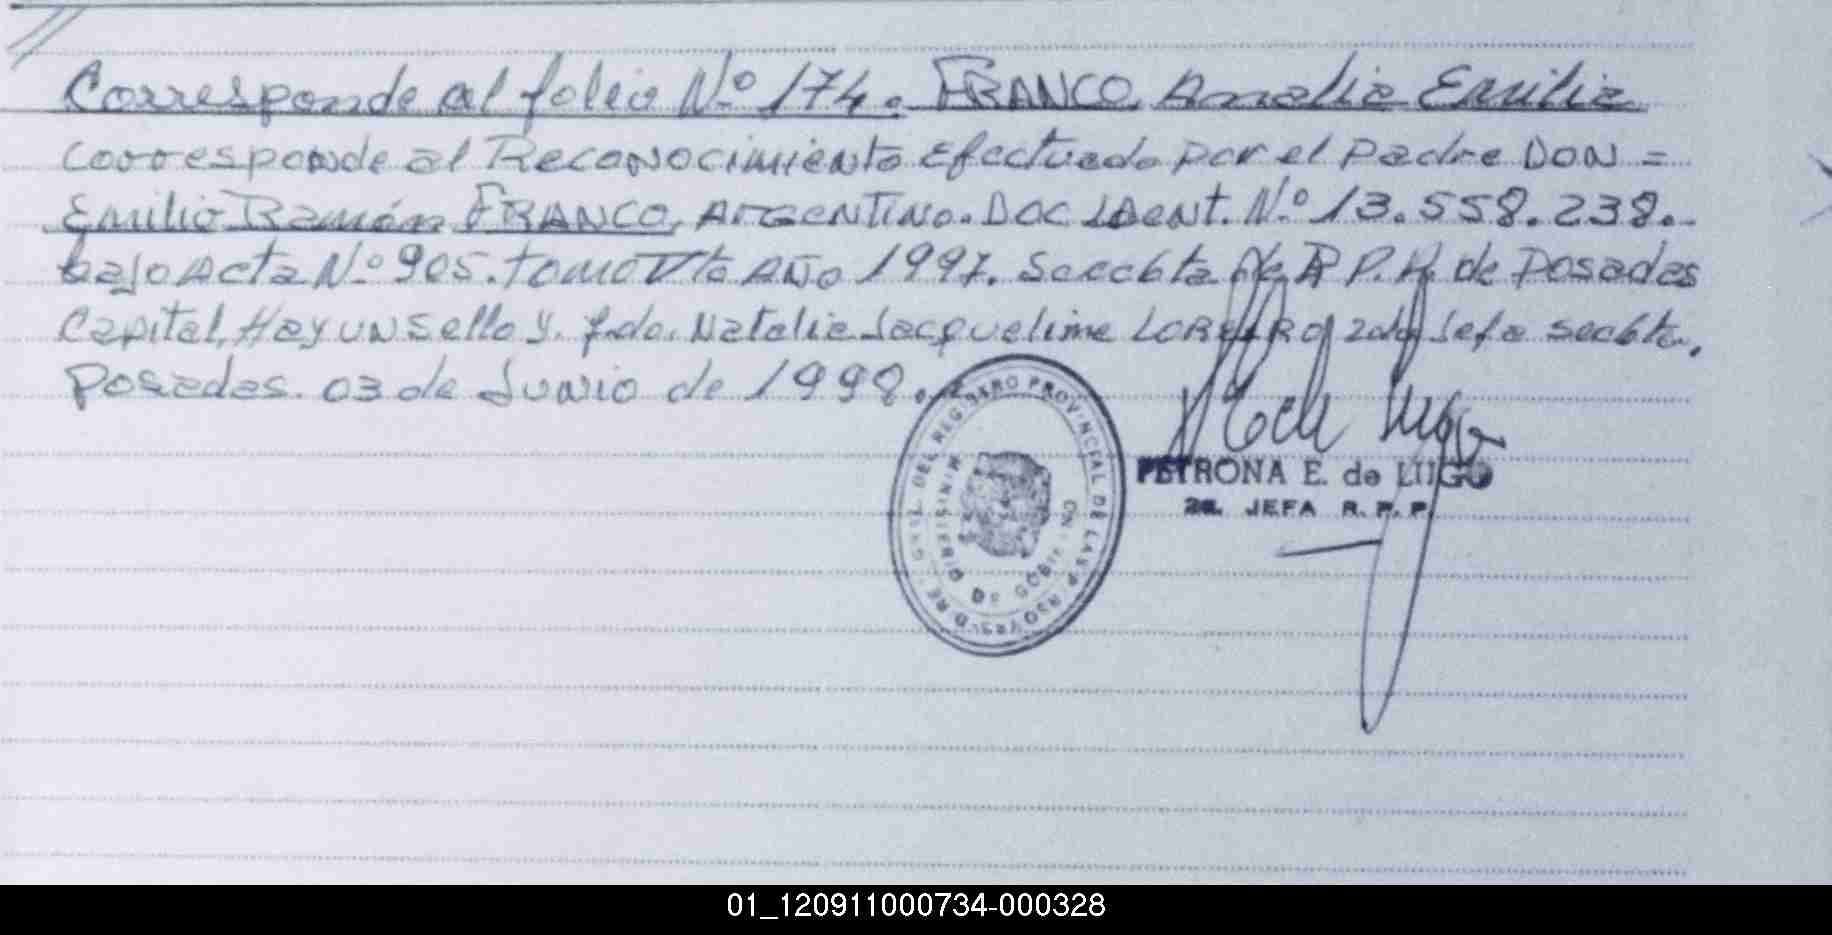 Corresponde al folio Nº 174. FRANCO, Amalia Emilia
corresponde al Reconocimiento efectuado por el padre DON =
Emilio Ramón FRANCO, ARGENTINO. DOC IDENT. Nº 13.558.238.-
bajo Acta Nº 905. tomo Vto AÑO 1997. R P. P. de Posadas
Capital, Hay UN Sello y. fdo. Natalia Jacqueline Jefa
Posadas. 03 de Junio de 1998.
DEL REGISTRO PROVINCIAL DE LAS
MINISTERIO DE GOBIERNO
PETRONA E. de LUGO
2a. JEFA R. P. P.
01_120911000734-000328